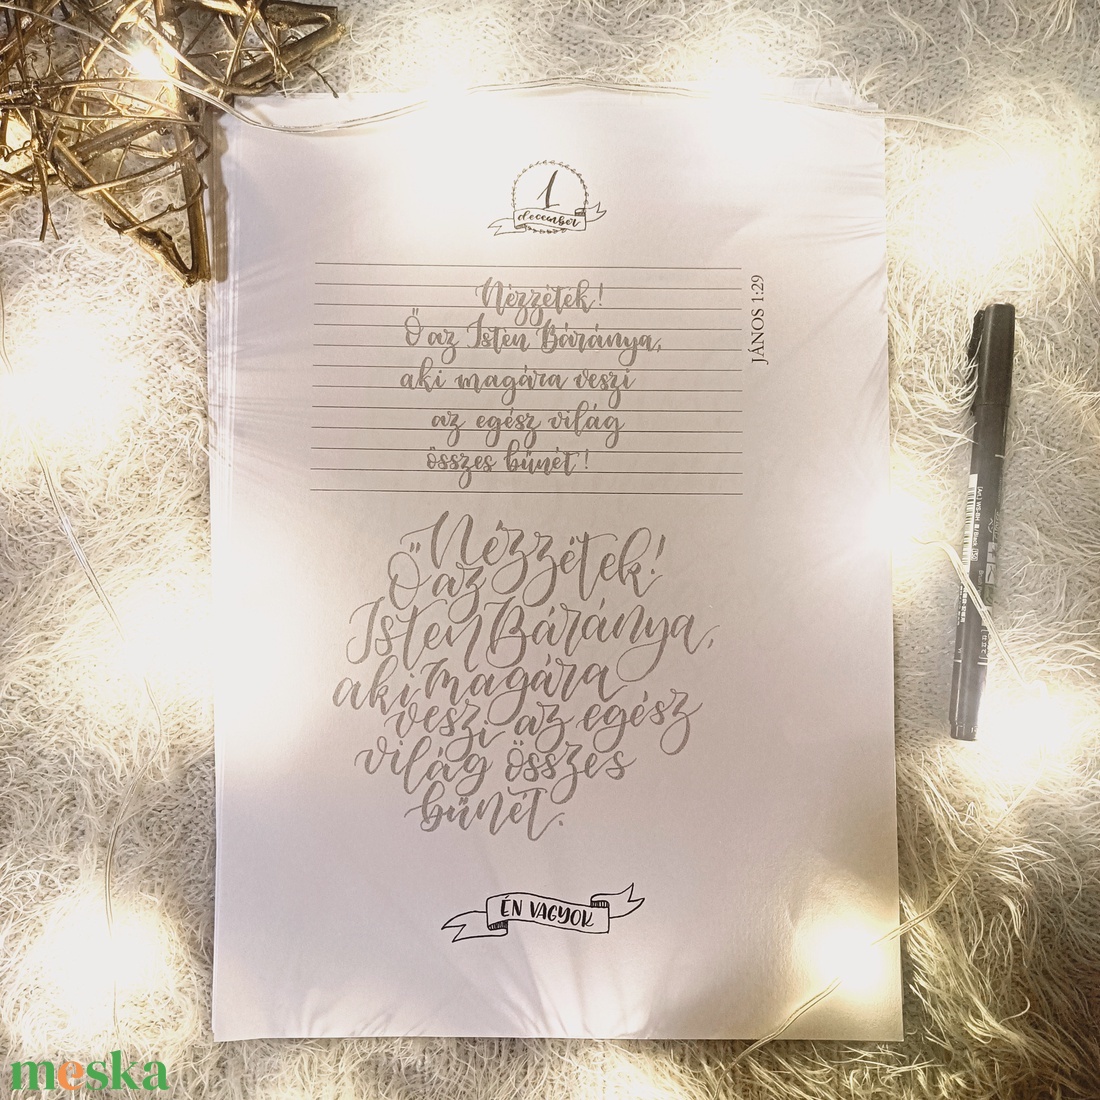 1
december
Nézzétek!
Ő az Isten Báránya,
aki magára veszi
az egész világ
összes bűnét!
JÁNOS 1:29
Nézzétek!
Ő az
Isten Báránya,
aki magára
veszi az egész
világ összes
bűnét.
ÉN VAGYOK
meska